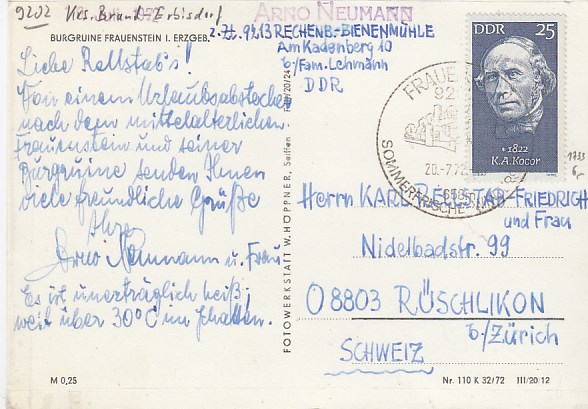 9202 Krs. Brand-Erbisdorf
ARNO NEUMANN
BURGRUINE FRAUENSTEIN I. ERZGEB.
z. Zt. 9213 RECHENB.-BIENENMÜHLE
Am Kadenberg 10
b/Fam. Lehmann
DDR
Liebe Rallstab's!
Von einem Urlaubsabstecher
nach dem mittelalterlichen
Frauenstein und seiner
Burgruine senden Ihnen
viele freundliche Grüße
Ihre
Arno Neumann u. Frau
Es ist unerträglich heiß,
weit über 30°C im Schatten.
M 0,25
FOTOWERKSTATT W. HÖPPNER, Seiffen
DDR 25
* 1822
K. A. Kocor
FRAUEN
92
20.-7.72
SOMMERFRISCHE
Herrn KARL RELLSTAB-FRIEDRICH
und Frau
Nidelbadstr. 99
O 8803 RÜSCHLIKON
b/Zürich
SCHWEIZ
Nr. 110 K 32/72 III/20/12